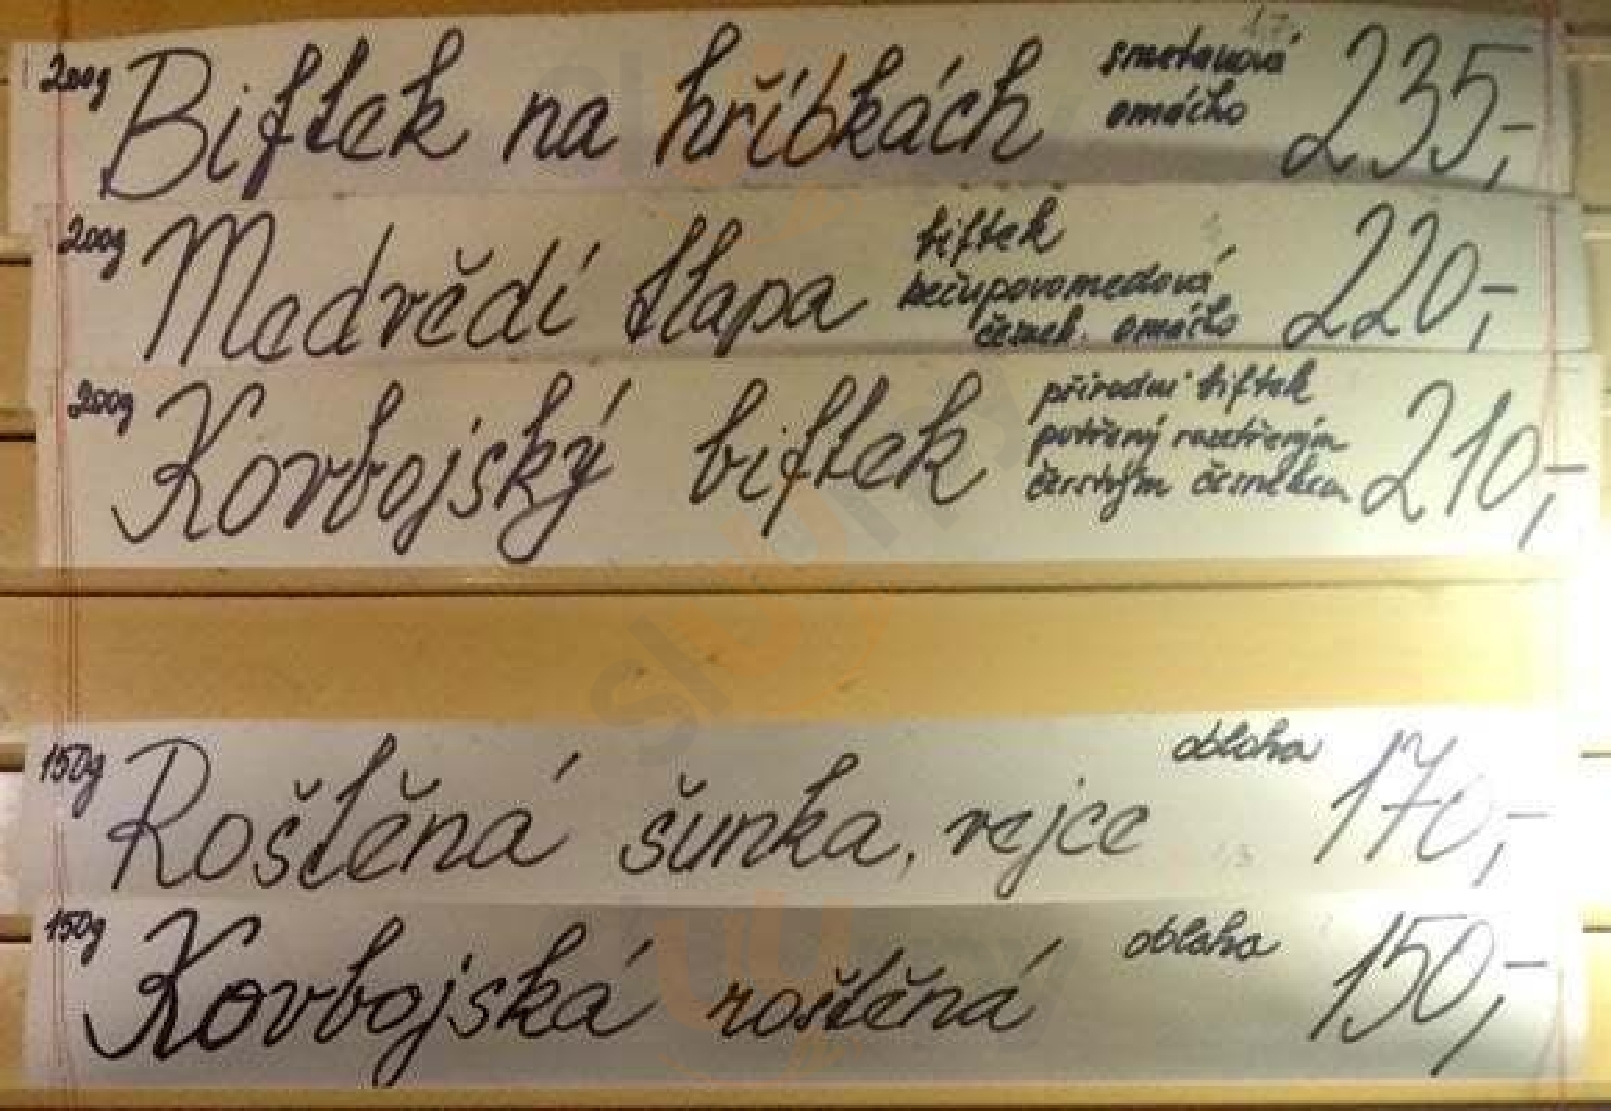 200g Biftek na hříbkách smetanová omáčka 235,-
200g Medvědí tlapa biftek kečupovomedová česnek. omáčka 220,-
200g Kovbojský biftek přírodní biftek potřený rozetřeným čerstvým česnekem 210,-
150g Roštěná šunka, vejce obloha 170,-
150g Kovbojská roštěná obloha 150,-